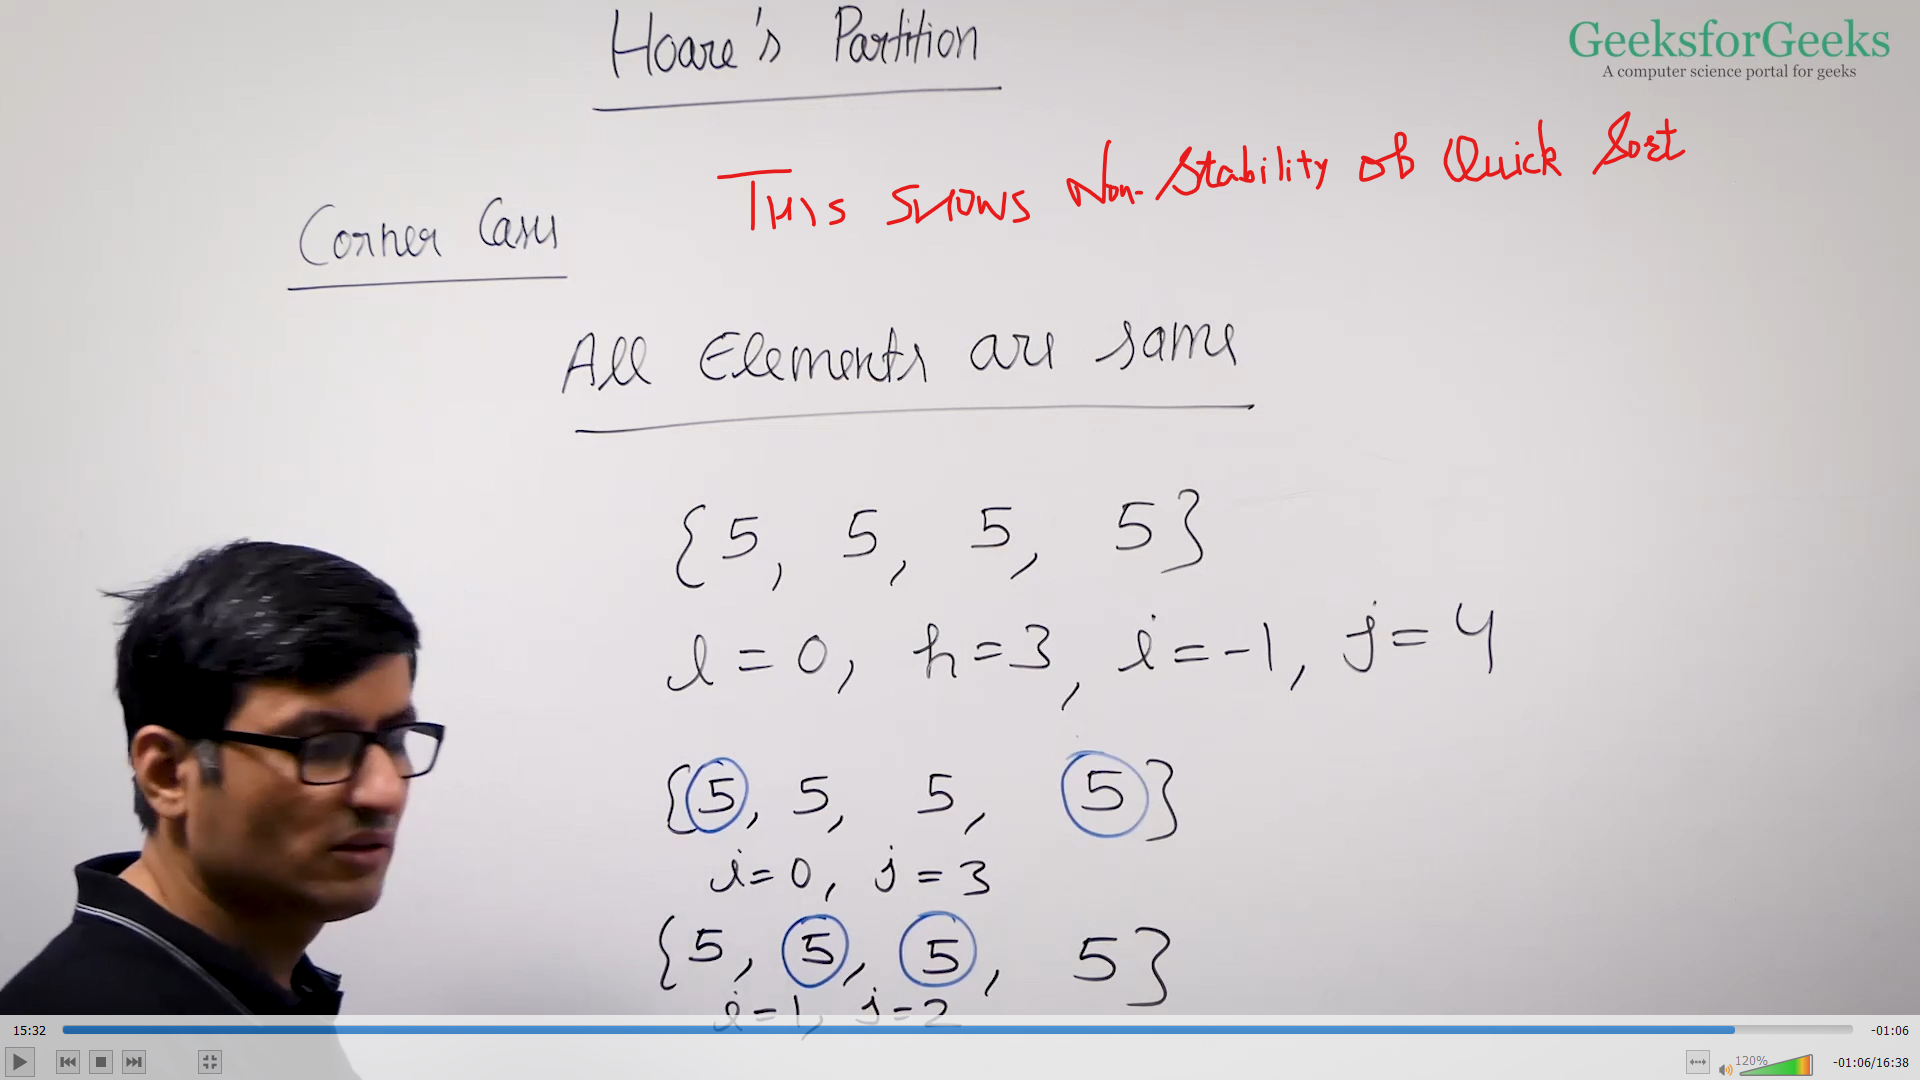 Hoare's Partition
GeeksforGeeks
A computer science portal for geeks
THIS SHOWS Non-Stability of Quick Sort
Corner Cases
All Elements are same
{5, 5, 5, 5}
l = 0, h = 3, i = -1, j = 4
{5, 5, 5, 5}
i = 0, j = 3
{5, 5, 5, 5}
i = 1, j = 2
15:32
-01:06
120%
-01:06/16:38